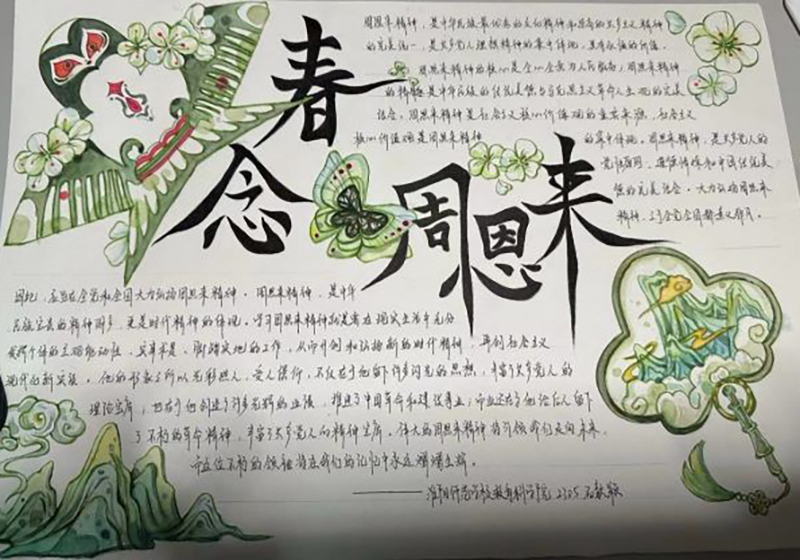 春
念
周恩来
周恩来精神，是中华民族最优秀的文化精神和
的完美统一，是共产党人理想精神的集中体现，具有永恒的价值。
周恩来精神的核心是全心全意为人民服务；周恩来精神
的精髓是中华民族的传统美德与马克思主义革命人生观的完美
结合。周恩来精神是社会主义核心价值观的重要来源，社会主义
核心价值观是周恩来精神
的集中体现。周恩来精神，是共产党人的
党性原则、道德情操和中国传统美
德的完美结合。大力弘扬周恩来
精神，
因此，应当在全党和全国大力弘扬周恩来精神。周恩来精神，是中华
民族宝贵的精神财富，更是时代精神的体现。学习周恩来精神就是要在现实生活中充分
发挥个体的主观能动性，实事求是、脚踏实地的工作，从而开创和弘扬新的时代精神，再创社会主义
现代化新实践。他的形象之所以光彩照人，受人景仰，不仅在于他留下许多闪光的思想，丰富了共产党人的
理论宝库；也在于他创造了许多光辉的业绩，推进了中国革命和建设事业；而且还在于他给后人留下
了不朽的革命精神，丰富了共产党人的精神宝库。伟大的周恩来精神将引领我们走向未来，
而这位不朽的领袖将在我们的记忆中永远熠熠生辉。
——淮阴师范学校教育科学学院 2305